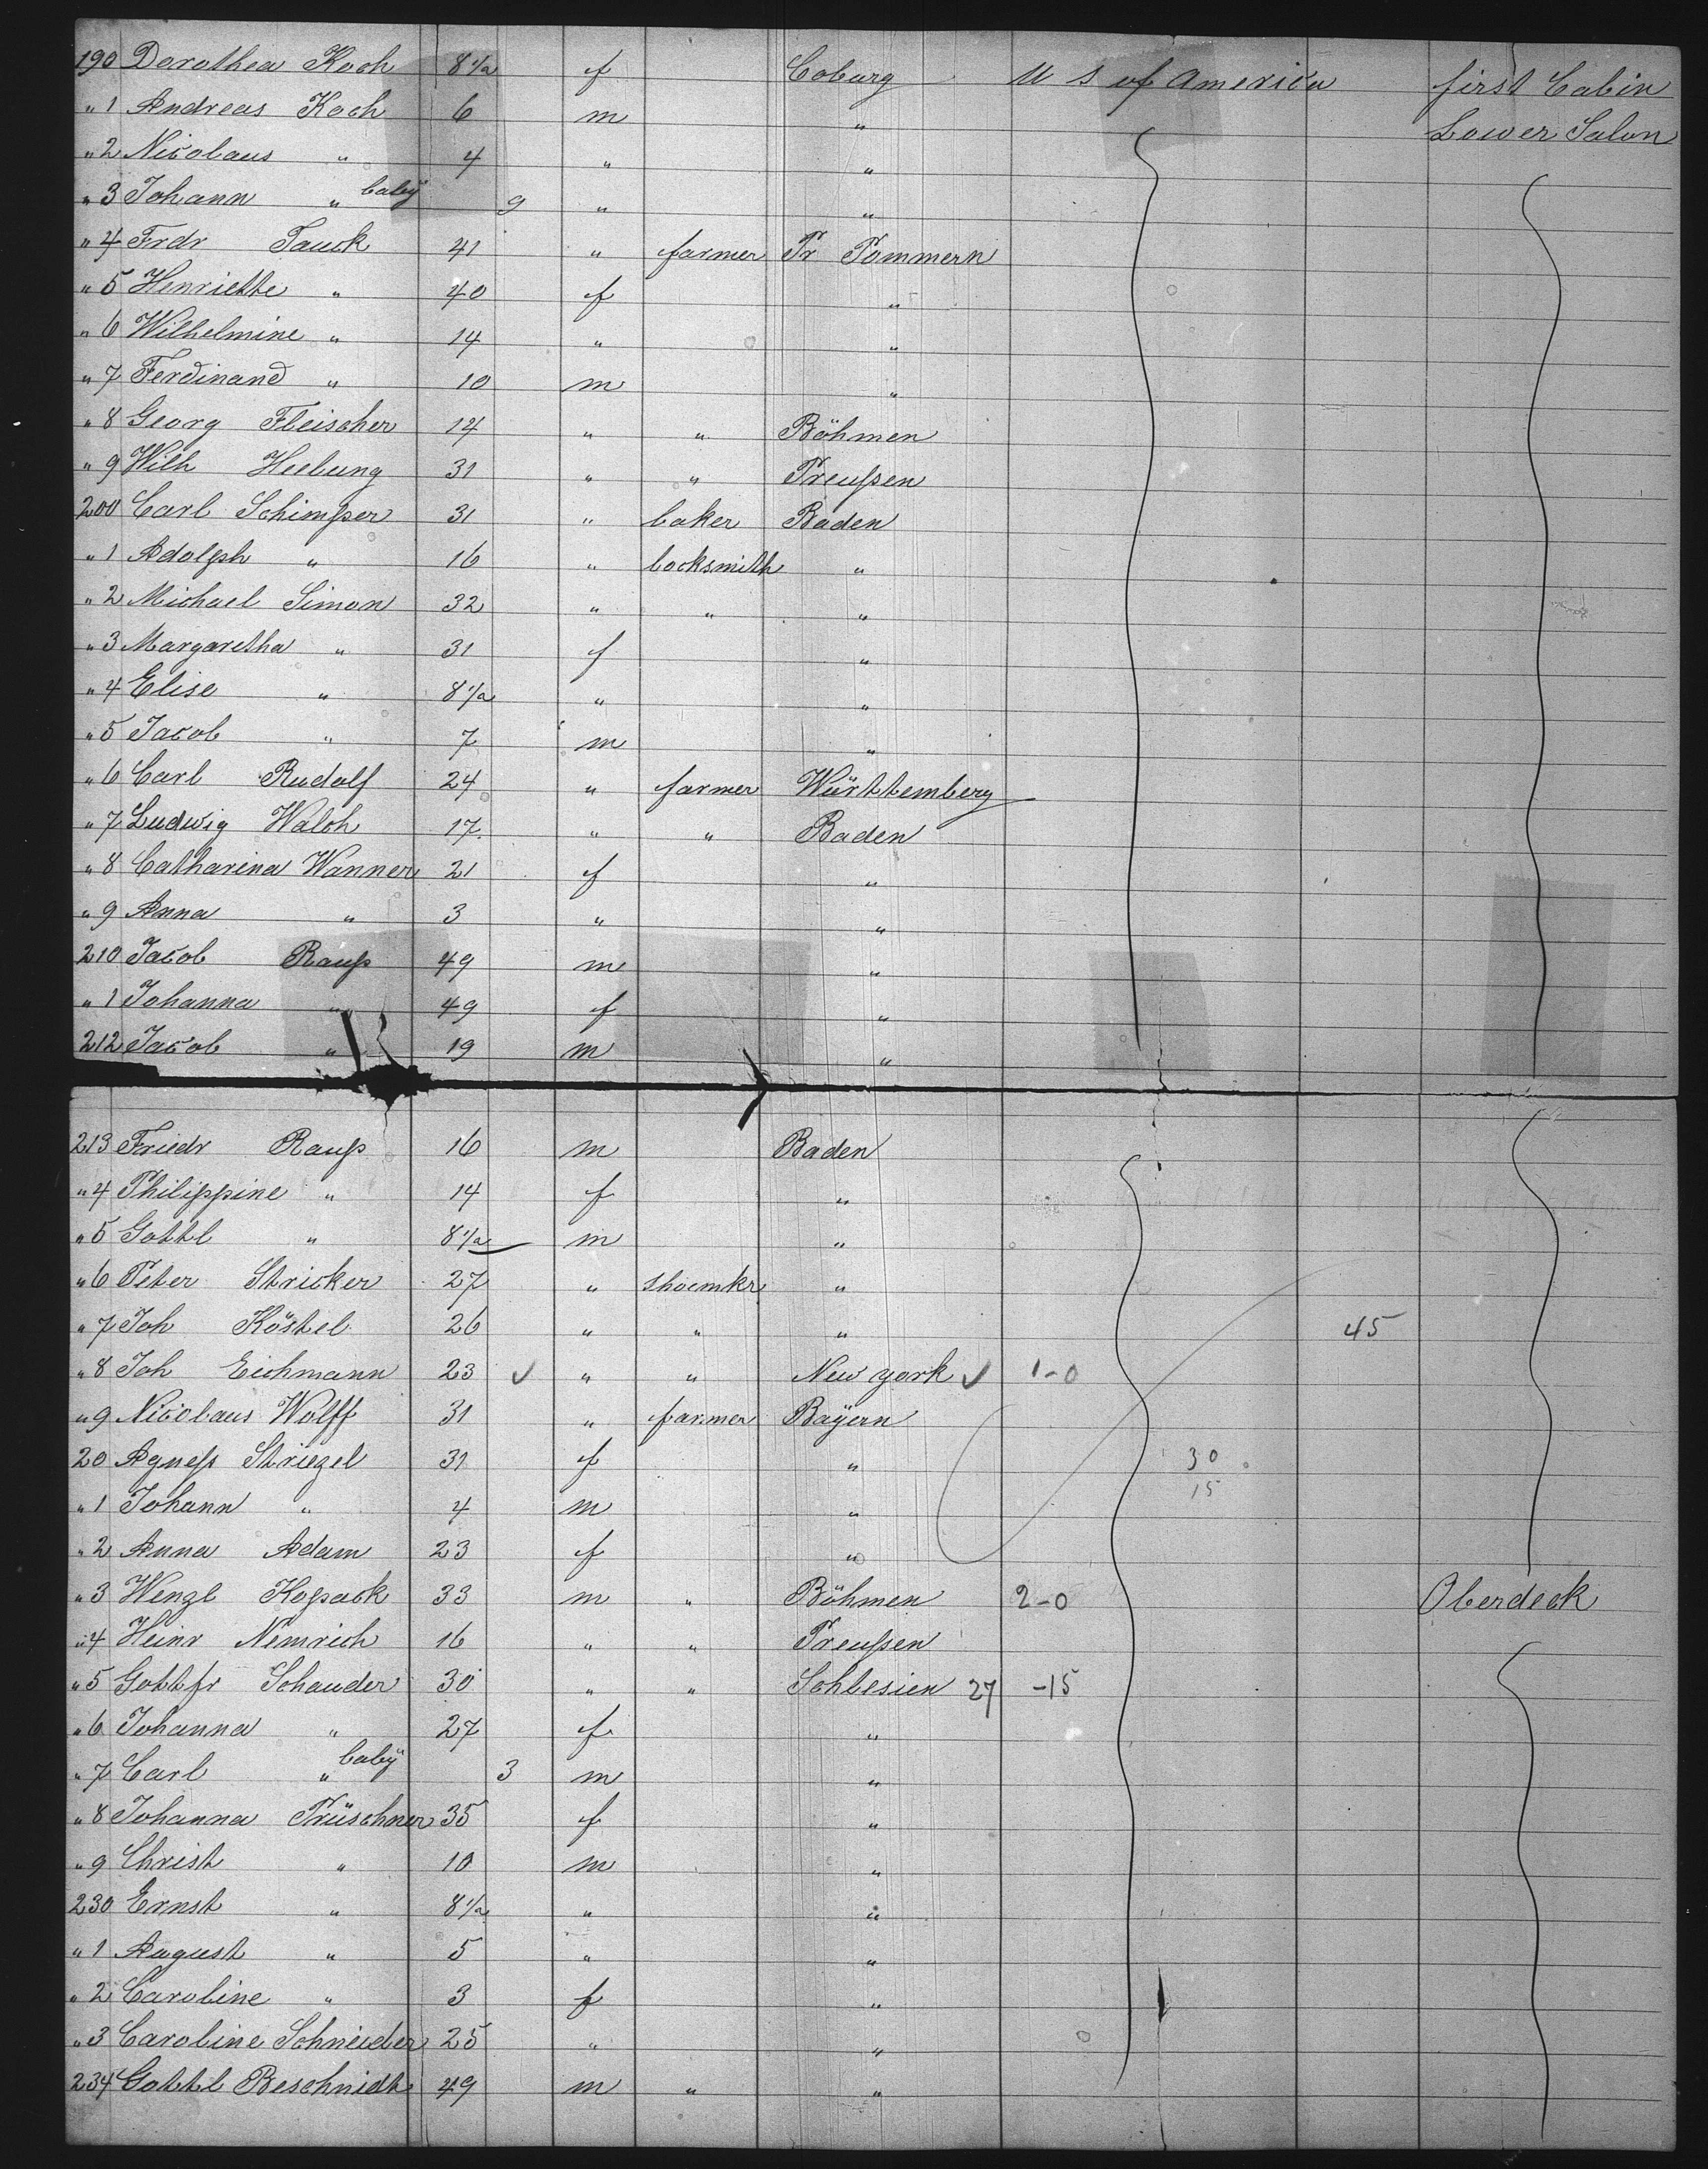 190 Dorothea Koch 8 1/2 f Coburg U S of America first Cabin
" 1 Andreas Koch 6 m " Lower Salon
" 2 Nicolaus " 4 " "
" 3 Johann " baby 9 " "
" 4 Frdr Tauck 41 " farmer Pr Pommern
" 5 Henriette " 40 f "
" 6 Wilhelmine " 14 " "
" 7 Ferdinand " 10 m "
" 8 Georg Fleischer 14 " " Böhmen
" 9 Wilh Heebung 31 " " Preußen
200 Carl Schimper 31 " baker Baden
" 1 Adolph " 16 " locksmith "
" 2 Michael Simon 32 " " "
" 3 Margaretha " 31 f "
" 4 Elise " 8 1/2 " "
" 5 Jacob " 7 m "
" 6 Carl Rudolf 24 " farmer Württemberg
" 7 Ludwig Walch 17 " " Baden
" 8 Catharina Wanner 21 f "
" 9 Anna " 3 " "
210 Jacob Rauß 49 m "
" 1 Johanna " 49 f "
212 Jacob " 19 m "
213 Friedr Rauß 16 m Baden
" 4 Philippine " 14 f "
" 5 Gottl " 8 1/2 m "
" 6 Peter Stricker 27 " shoemkr "
" 7 Joh Köstel 26 " " " 45
" 8 Joh Eichmann 23 " " New york 1-0
" 9 Nicolaus Wolff 31 " farmer Bayern
20 Agneß Striegel 31 f " 30
" 1 Johann " 4 m " 15
" 2 Anna Adam 23 f "
" 3 Wenzl Kopack 33 m " Böhmen 2-0 Oberdeck
" 4 Heinr Nemrich 16 " " Preußen
" 5 Gottfr Schauder 30 " " Schlesien 27 -15
" 6 Johanna " 27 f "
" 7 Carl " baby 3 m "
" 8 Johanna Prüschner 35 f "
" 9 Christ " 10 m "
230 Ernst " 8 1/2 " "
" 1 August " 5 " "
" 2 Caroline " 3 f "
" 3 Caroline Schneider 25 " "
234 Gottl Beschnidt 49 m " "